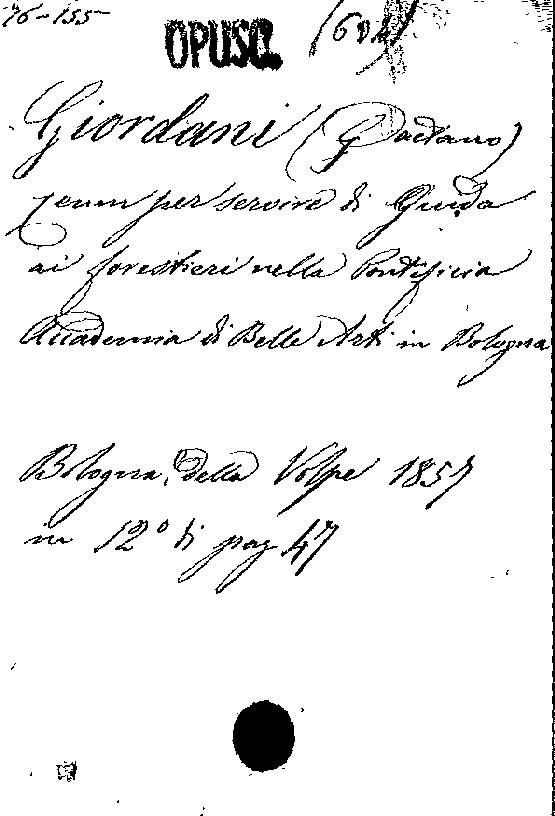 76-155
OPUSC.
Giordani (Gaetano)
Cenni per servire di Guida
ai forestieri nella Pontificia
Accademia di Belle Arti in Bologna
Bologna, della Volpe 1857
in 12° di pag 47